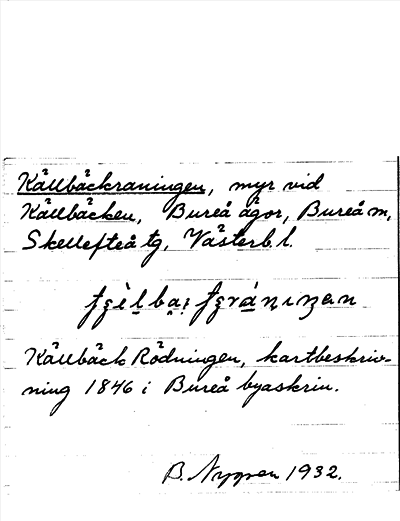 Källbäckraningen, myr vid
Källbäcken, Bureå ägor, Bureå m,
Skellefteå tg, Västerb. l.
Källbäck Rödningen, kartbeskriv-
ning 1846 i Bureå byaskrin.
B. Nygren 1932.